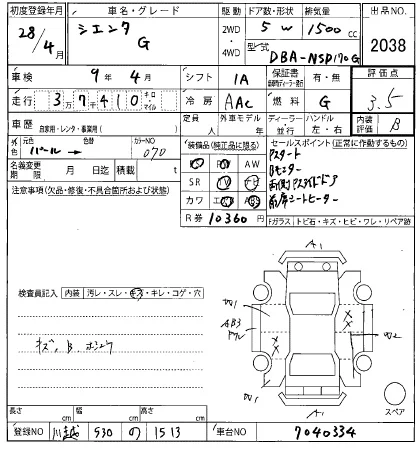 初度登録年月 車名・グレード 駆動 ドア数・形状 排気量 出品NO.
28/4月 シエンタ G 2WD・4WD 5W 1500cc 2038
型式 DBA-NSP170G
車検 9年4月 シフト IA 保証書 有・無 評価点
走行 37千410 キロ マイル 冷房 AAC 燃料 G 3.5
車歴 自家用・レンタ・事業用( ) 定員 人 外車モデル 年 ディーラー・並行 ハンドル 左・右 内装評価 B
外色 元色 パール→ 色替 カラーNO 070
装備品(純正品に限る) セールスポイント(正常に作動するもの)
名義変更期限 月 日迄 積載 t
PS PW AW
SR TV ナビ
カワ エアB
Pスタート
Bモニター
両側Pスライドドア
前席シートヒーター
注意事項(欠品・修復・不具合箇所および状態)
R券 10360円
Fガラス トビ石・キズ・ヒビ・ワレ・リペア跡
検査員記入 内装 汚レ・スレ・キズ・キレ・コゲ・穴
キズ、B、ホシュウ
A1
W1
AB3
W2
W1
A1
スペア
長さ cm 幅 cm 高さ cm
登録NO 川越 530 の 1513 車台NO 7040334